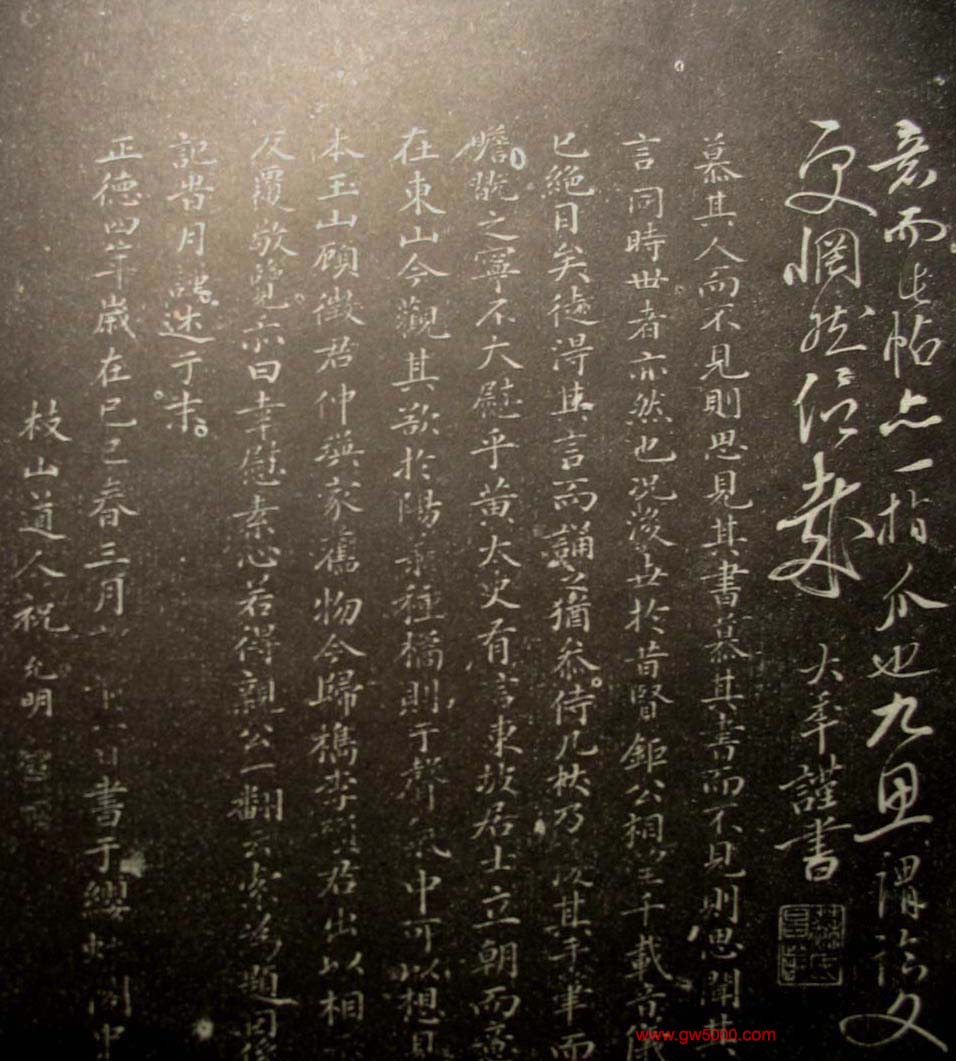 意而此帖亦一指爪也九思謂詩文
更惘然信哉 大年謹書
慕其人而不見則思見其書慕其書而不見則思聞其
言同時世者亦然也況後世於昔賢鉅公相望千載音儀
已絕目矣徒得其言而誦之猶忝侍几杖乃後其手筆而
瞻翫之寧不大慰乎黃太史有言東坡居士立朝而意
在東山今觀其欲於陽羨種橘則于聲氣中可以想見
本玉山顧徵君仲瑛家舊物今歸檇李項君出以相
反覆敬覽亦曰幸慰素心若得親公一翻云索為題因僭
記昔月 述于末
正德四年歲在己巳春三月 日書于纓 閣中
枝山道人祝允明
www.gw5000.com